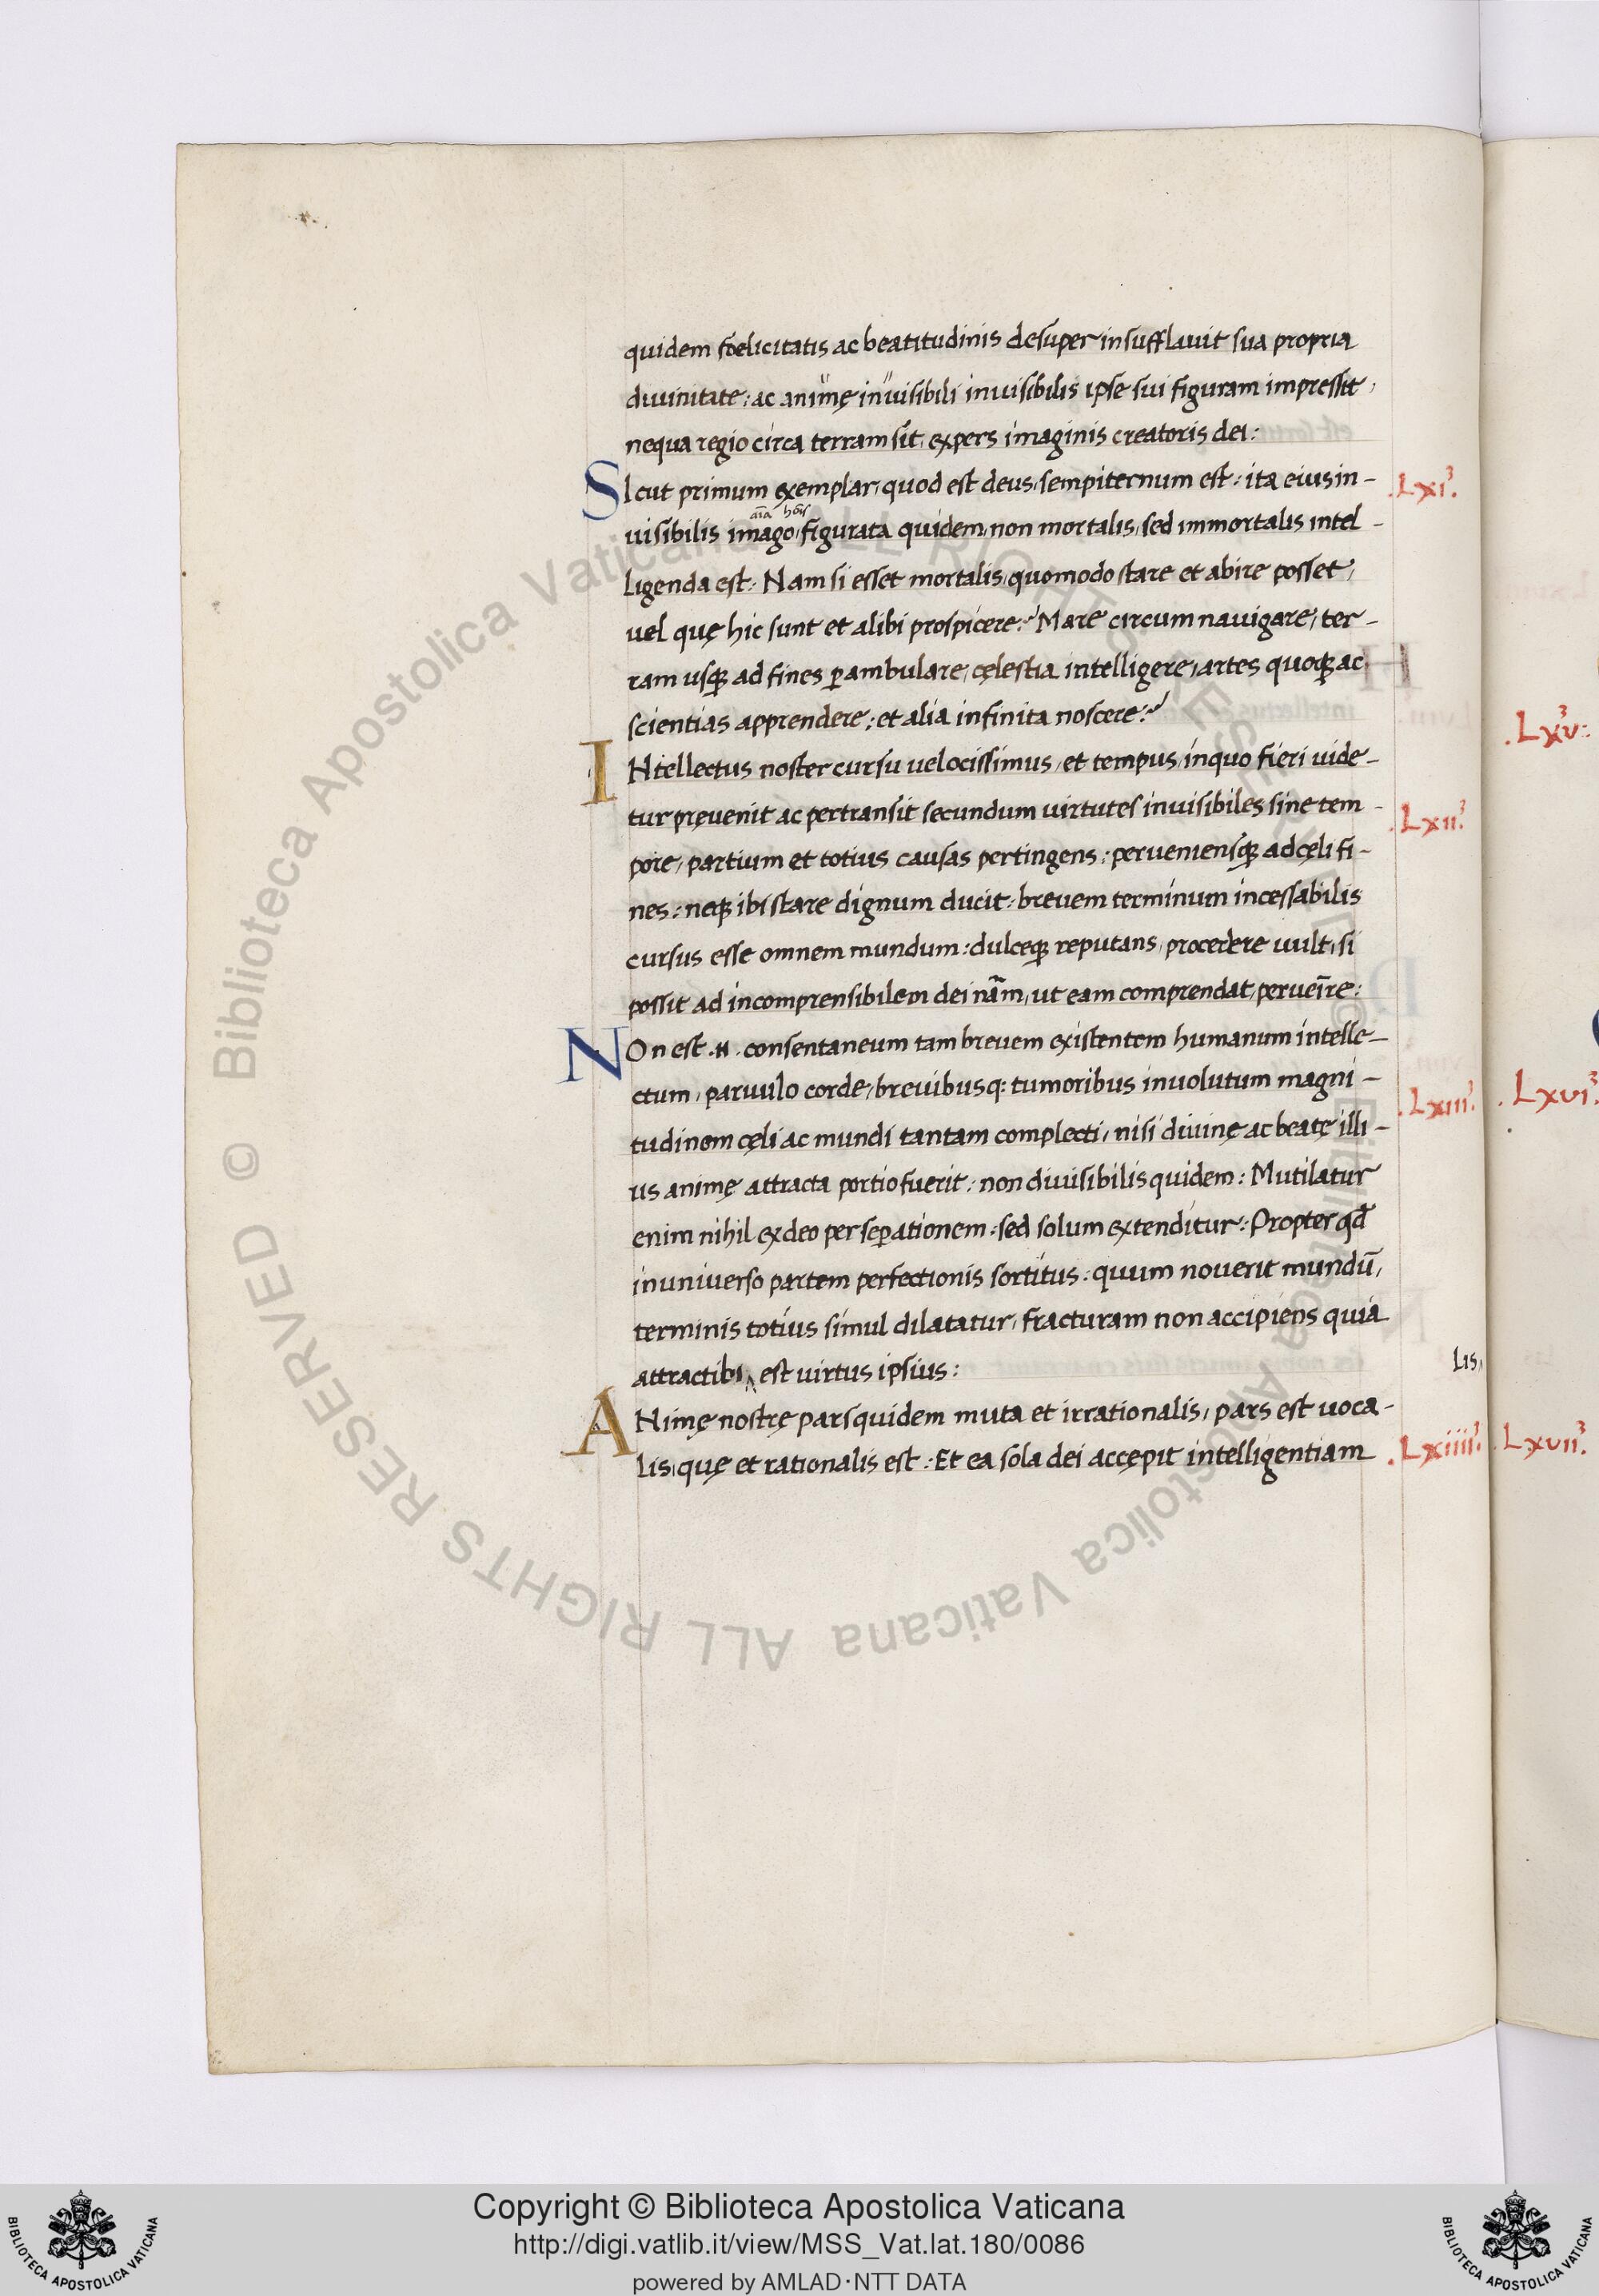 quidem foelicitatis ac beatitudinis desuper insufflauit sua propria
diuinitate: ac animę inuisibili inuisibilis ipse sui figuram impressit,
nequa regio circa terram sit expers imaginis creatoris dei:
SIcut primum exemplar, quod est deus, sempiternum est: ita eius in- .Lxi³.
aīa hoīs
uisibilis imago, figurata quidem, non mortalis, sed immortalis intel-
ligenda est: Nam si esset mortalis, quomodo stare et abire posset,
uel quę hic sunt et alibi prospicere? Mare circum nauigare, ter-
ram usq; ad fines ꝑambulare, cęlestia intelligere, artes quoq; ac
scientias apprendere: et alia infinita noscere?
INtellectus noster cursu uelocissimus, et tempus, inquo fieri uide-
tur pręuenit ac pertransit secundum uirtutes inuisibiles sine tem- .Lxii³.
pore, partium et totius causas pertingens: perueniensq; ad cęli fi-
nes: neq; ibi stare dignum ducit: breuem terminum incessabilis
cursus esse omnem mundum: dulceq; reputans, procedere uult, si
possit ad incomprensibilem dei nām, ut eam comprendat, peruenīre:
NOn est .n. consentaneum tam breuem existentem humanum intelle-
ctum, paruulo corde, breuibusq: tumoribus inuolutum magni- .Lxiii³.
tudinem cęli ac mundi tantam complecti, nisi diuinę ac beatę illi-
us animę attracta portio fuerit: non diuisibilis quidem: Mutilatur
enim nihil ex deo per seꝑationem: sed solum extenditur: Propter qđ
in uniuerso partem perfectionis sortitus: quum nouerit mundū,
terminis totius simul dilatatur, fracturam non accipiens quia
attractibi‸ est uirtus ipsius: lis,
ANimę nostrę pars quidem muta et irrationalis, pars est uoca-
lis, quę et rationalis est: Et ea sola dei accępit intelligentiam .Lxiiii³.
.Lxv³:
.Lxvi³.
.Lxvii³.
Copyright © Biblioteca Apostolica Vaticana
http://digi.vatlib.it/view/MSS_Vat.lat.180/0086
powered by AMLAD·NTT DATA
BIBLIOTECA APOSTOLICA VATICANA
BIBLIOTECA APOSTOLICA VATICANA
© Biblioteca Apostolica Vaticana ALL RIGHTS RESERVED © Biblioteca Apostolica Vaticana ALL RIGHTS RESERVED